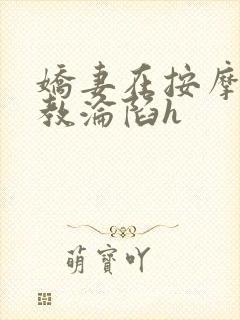 嬌妻在按摩
教淪陷h
萌寶吖